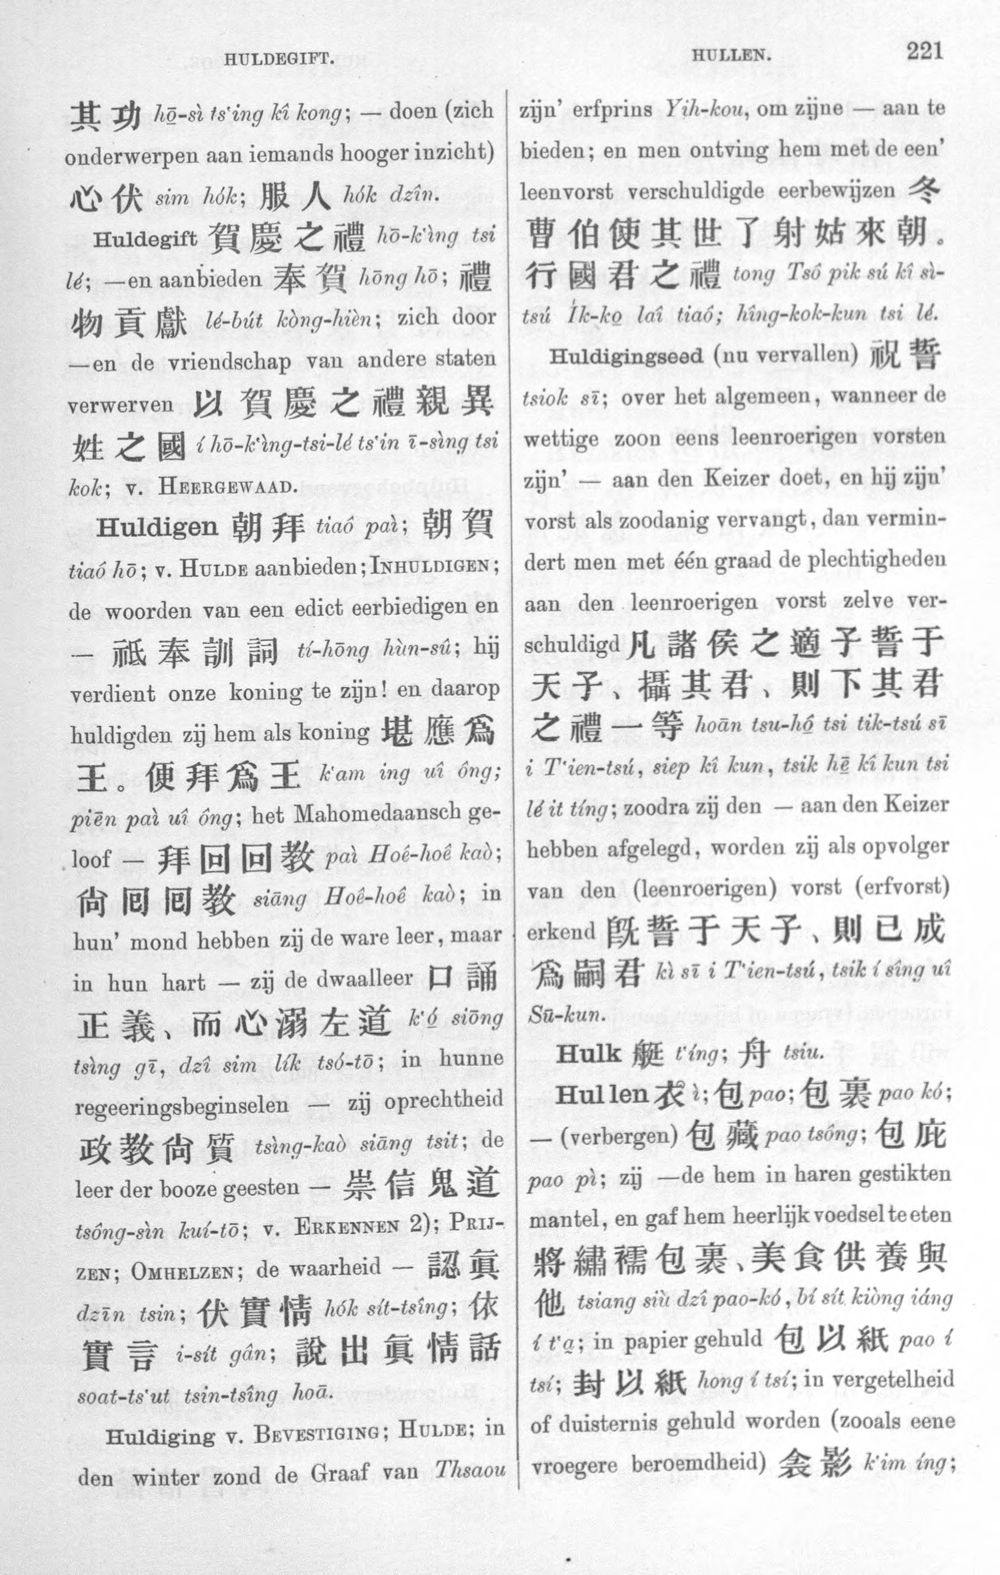 HULDEGIFT.
HULLEN.
221
其功 hō̤-sì ts'ing kî kong; — doen (zich
onderwerpen aan iemands hooger inzicht)
心伏 sim hók; 服人 hók dzîn.
Huldegift 賀慶之禮 hō-k'ìng tsi
lé; —en aanbieden 奉賀 hōng hō; 禮
物貢獻 lé-bút kòng-hièn; zich door
—en de vriendschap van andere staten
verwerven 以賀慶之禮親異
姓之國 í hō-k'ìng-tsi-lé ts'in ī-sìng tsi
kok; v. HEERGEWAAD.
Huldigen 朝拜 tiaó paì; 朝賀
tiaó hō; v. HULDE aanbieden; INHULDIGEN;
de woorden van een edict eerbiedigen en
— 祗奉訓詞 tí-hōng hùn-sû; hij
verdient onze koning te zijn! en daarop
huldigden zij hem als koning 堪應爲
王。便拜爲王 k'am ing uî ông;
piēn paì uî ông; het Mahomedaansch ge-
loof — 拜回回教 paì Hoê-hoê kaò;
尙囘囘教 siāng Hoê-hoê kaò; in
hun' mond hebben zij de ware leer, maar
in hun hart — zij de dwaalleer 口誦
正義、而心溺左道 k'ó̤ siōng
tsìng gī, dzî sim lík tsó-tō; in hunne
regeeringsbeginselen — zij oprechtheid
政教尙質 tsìng-kaò siāng tsit; de
leer der booze geesten — 崇信鬼道
tsông-sìn kuí-tō; v. ERKENNEN 2); PRIJ-
ZEN; OMHELZEN; de waarheid — 認眞
dzīn tsin; 伏實情 hók sít-tsîng; 依
實言 i-sít gân; 說出眞情話
soat-ts'ut tsin-tsîng hoā.
Huldiging v. BEVESTIGING; HULDE; in
den winter zond de Graaf van Thsaou
zijn' erfprins Yih-kou, om zijne — aan te
bieden; en men ontving hem met de een'
leenvorst verschuldigde eerbewijzen 冬
曹伯使其世了射姑來朝。
行國君之禮 tong Tsô pik sú kî sì-
tsú Ík-ko̤ laî tiaó; hîng-kok-kun tsi lé.
Huldigingseed (nu vervallen) 祝誓
tsiok sī; over het algemeen, wanneer de
wettige zoon eens leenroerigen vorsten
zijn' — aan den Keizer doet, en hij zijn'
vorst als zoodanig vervangt, dan vermin-
dert men met één graad de plechtigheden
aan den leenroerigen vorst zelve ver-
schuldigd 凡諸侯之適子誓于
天子、攝其君、則下其君
之禮一等 hoān tsu-hô̤ tsi tik-tsú sī
i T'ien-tsú, siep kî kun, tsik hē̤ kî kun tsi
lé it tíng; zoodra zij den — aan den Keizer
hebben afgelegd, worden zij als opvolger
van den (leenroerigen) vorst (erfvorst)
erkend 旣誓于天子、則已成
爲嗣君 kì sī i T'ien-tsú, tsik í sîng uî
Sū-kun.
Hulk 艇 t'íng; 舟 tsiu.
Hullen 衣 ì; 包 pao; 包裹 pao kó;
— (verbergen) 包藏 pao tsông; 包庇
pao pì; zij —de hem in haren gestikten
mantel, en gaf hem heerlijk voedsel te eten
將繡襦包裹、美食供養與
他 tsiang siù dzî pao-kó, bí sít kiòng iáng
í t'a̤; in papier gehuld 包以紙 pao í
tsí; 封以紙 hong í tsí; in vergetelheid
of duisternis gehuld worden (zooals eene
vroegere beroemdheid) 衾影 k'im íng;